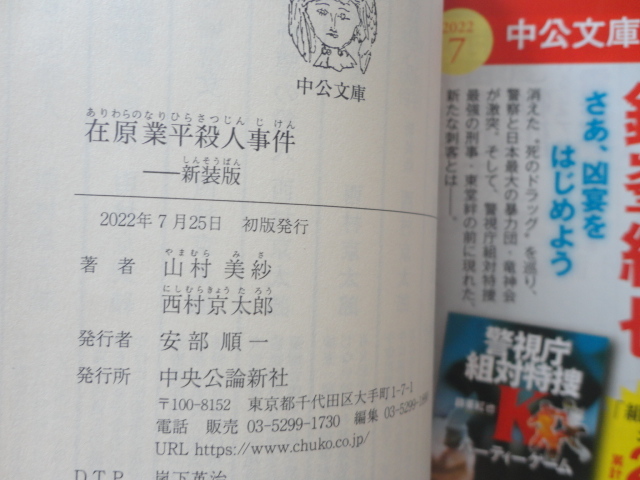 中公文庫
ありわらのなりひらさつじんじけん
在原業平殺人事件
しんそうばん
――新装版
2022年7月25日 初版発行
やまむら みさ
著者 山村美紗
にしむらきょうたろう
西村京太郎
発行者 安部順一
発行所 中央公論新社
〒100-8152 東京都千代田区大手町1-7-1
電話 販売 03-5299-1730 編集 03-5299-
URL https://www.chuko.co.jp/
DTP 嵐下英治
2022
7
中公文庫
さあ、凶宴を
はじめよう
消えた〝死のドラッグ〟を巡り、
警察と日本最大の暴力団・竜神会
が激突。そして、警視庁組対特捜
最強の刑事・東堂絆の前に現れた、
新たな刺客とは――。
警視庁
組対特捜
K
パーティーゲーム